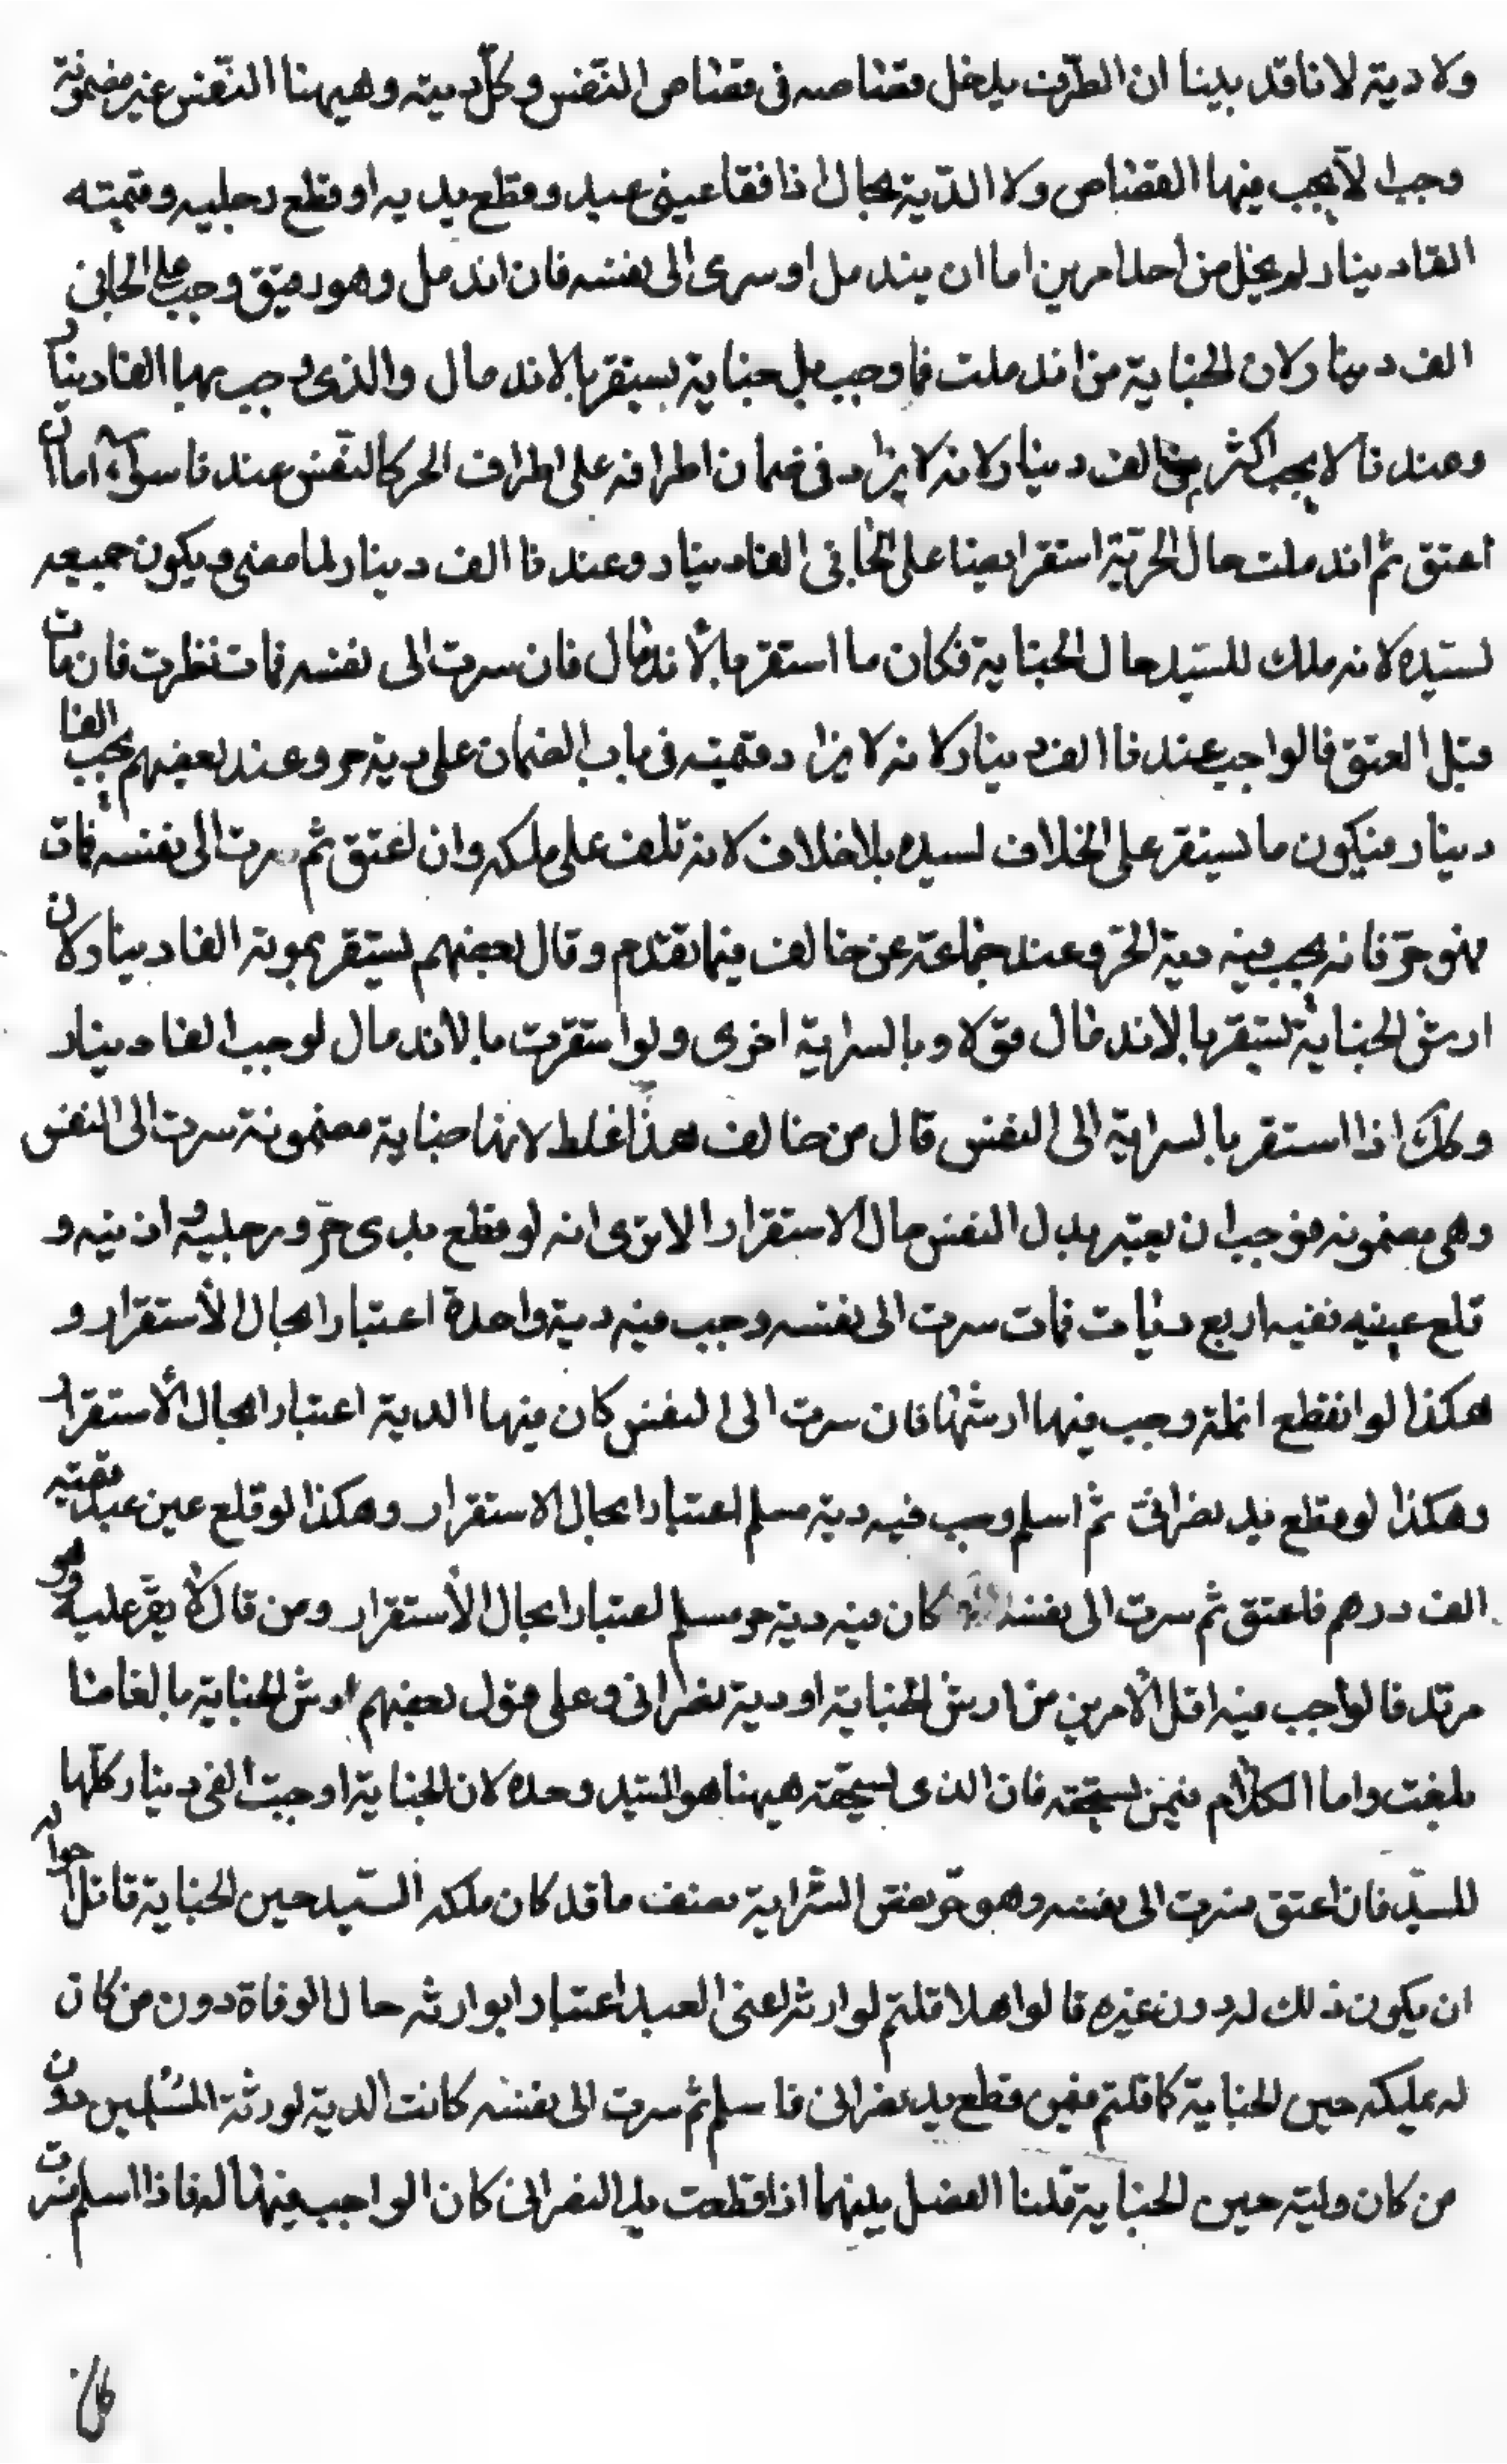 ولا دية لانا قد بينا ان الطرف يدخل قصاصه في قصاص النفس وكل دية وهيهنا النفس غير مضمونة
وجب ا لا يجب فيها القصاص ولا الدية بحال اذا فقأ عيني عبد وقطع يديه او قطع رجليه وقيمته
الفا دينار لم يخل من احد امرين اما ان يندمل او سرى الى نفسه فان اندمل وهو رقيق وجب على الجاني
الف دينار لان الجناية من اندملت فما وجب بل جناية يستقر بالاندمال والذي وجب بها الفا دينار
وعندنا لا يجب اكثر من الف دينار لانه لا يزاد في ضمان اطرافه على اطراف الحر كالنفس عندنا سواء اما ان
اعتق ثم اندملت حال الحرية استقر ايضا على الجاني الفا دينار وعندنا الف دينار لما مضى ويكون جميعه
لسيده لانه ملك للسيد حال الجناية فكان ما استقر بالاندمال فان سرت الى نفسه فمات نظرت فان مات
قبل العتق فالواجب عندنا الف دينار لانه لا يزاد قيمته في باب الضمان على دية حر وعند بعضهم يجب الفا
دينار فيكون ما يستقر على الخلاف لسيده بلا خلاف لانه تلف على ملكه وان اعتق ثم سرت الى نفسه فمات
فهو حر فانه يجب فيه دية الحر وعند جماعة عن خالف فيما تقدم وقال بعضهم يستقر بموته الفا دينار لان
ارش الجناية يستقر بالاندمال قولا وبالسراية اخرى ولو استقرت بالاندمال لوجب الفا دينار
وكك اذا استقر بالسراية الى النفس قال من خالف هذا غلط لانها جناية مضمونة سرت الى النفس
وهي مضمونه فوجب ان يعتبر بدل النفس حال الاستقرار الا ترى انه لو قطع يدي حر ورجليه واذنيه و
قلع عينيه نفيه اربع ديات فمات سرت الى نفسه وجب فيه دية واحدة اعتبارا بحال الاستقرار و
هكذا لو انقطع انملة وجب فيها ارشها فان سرت الى النفس كان فيها الدية اعتبارا بحال الاستقرار
وهكذا لو قطع يد نصراني ثم اسلم وجب فيه دية مسلم اعتبارا بحال الاستقرار وهكذا لو قلع عين عبد قيمته
الف درهم فاعتق ثم سرت الى نفسه كان فيه دية حر مسلم اعتبارا بحال الاستقرار ومن قال لا يقر عليه وهو
مرتد فالواجب فيه اقل الامرين من ارش الجناية او دية نصراني وعلى قول بعضهم ارش الجناية بالغا ما
بلغت واما الكلام فيمن يستحقه فان الذي يستحقه هيهنا هو السيد وحده لان الجناية اوجبت الفي دينار كلها
للسيد فان اعتق فسرت الى نفسه وهو حر نقص السراية نصف ما قد كان ملكه السيد حين الجناية قاتل احواله
ان يكون ذلك له دون غيره قالوا هلا قلتم لوارثه اعنى العبد اعتبارا بوارثه حال الوفاة دون من كان
له يملكه حين الجناية كما قلتم فيمن قطع يد نصراني فاسلم ثم سرت الى نفسه كانت الدية لورثة المسلمين دون
من كان وليه حين الجناية قلنا الفصل بينهما اذا قطعت يد النصراني كان الواجب فيها له فاذا اسلم سرت
كان